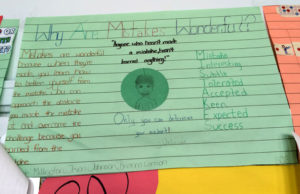 Why Are Mistakes Wonderful?
"Anyone who hasn't made
a mistake, hasn't
learned anything."
Mistakes are wonderful
because when they're
made you learn how
to better yourself from
the mistake. You can
approach the obstacle
you made the mistake
at and overcome the
challenge because you
learned from the
mistake.
Only you can determine
your mindset!
Mistake
Interesting
Subtle
Tolerated
Accepted
Keen
Expected
Success